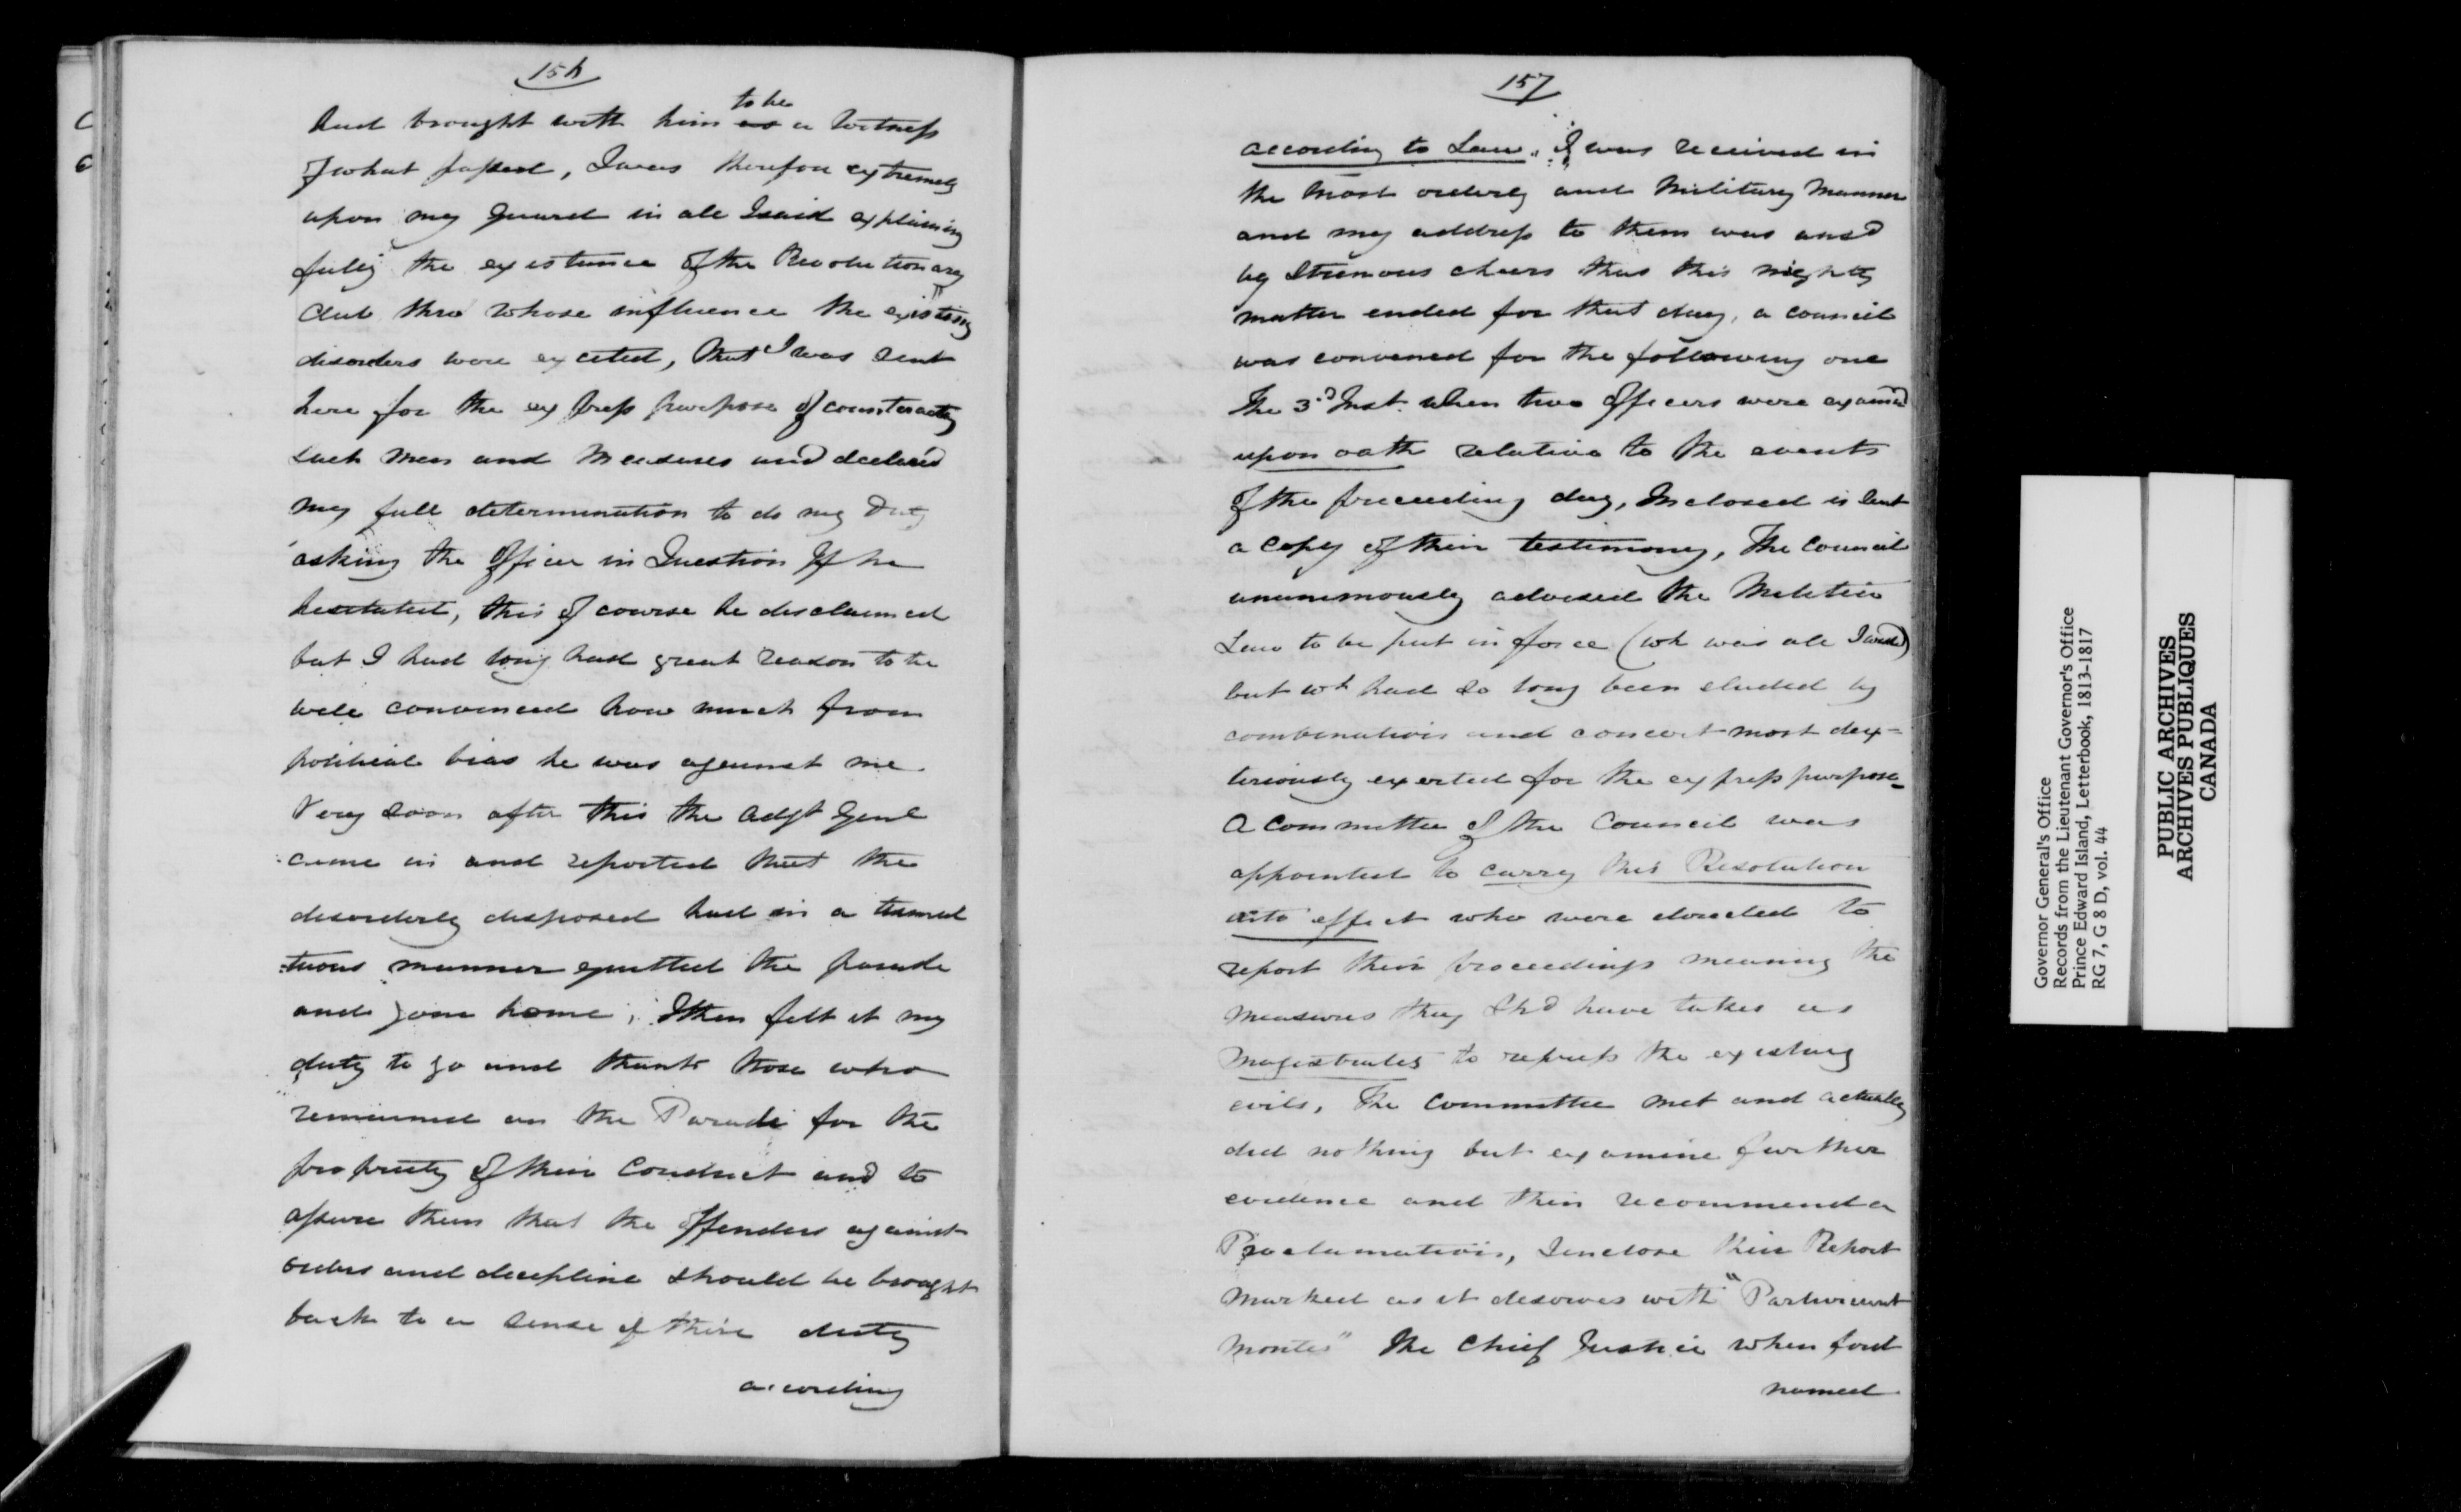 156
had brought with him to be as a Witness
of what passed, I was therefore extremely
upon my guard in all I said explaining
fully the existence of the Revolutionary
Club thro whose influence the existing
disorders were excited, that I was sent
here for the express purpose of counteracting
such men and Measures and declared
my full determination to do my Duty
asking the Officer in Question If he
hesitated, this of course he disclaimed
but I had long had great reason to be
well convinced how much from
political bias he was against me.
Very soon after this the Adjt Genl
came in and reported that the
disorderly disposed had in a tumul
:tuous manner quitted the parade
and gone home; I then felt it my
duty to go and thank those who
remained on the Parade for the
propriety of their Conduct and to
assure them that the offenders against
orders and decipline should be brought
back to a sense of their duty
according
157
according to Law. I was received in
the most orderly and Military Manner
and my address to them was ansd
by Strenuous cheers thus this mighty
matter ended for that day, a council
was convened for the following one
the 3d Inst. when two Officers were examd
upon oath relative to the events
of the preceeding day, Inclosed is sent
a copy of their testimony, The Council
unanimously advised the Militia
Law to be put in force (wh was all I used)
but wh had so long been eluded by
combination and concert most dex-
teriously exerted for the express purpose
A Committee of the Council was
appointed to carry this Resolution
into effect who were directed to
report their proceedings meaning the
measures they Shd have taken as
Magistrates to repress the existing
evils, The Committee met and actually
did nothing but examine further
evidence and then recommend a
Proclamation, I inclose their Report
Marked as it deserves with "Parturiunt
Montes" The Chief Justice when first
named
Governor General's Office
Records from the Lieutenant Governor's Office
Prince Edward Island, Letterbook, 1813-1817
RG 7, G 8 D, vol. 44
PUBLIC ARCHIVES
ARCHIVES PUBLIQUES
CANADA